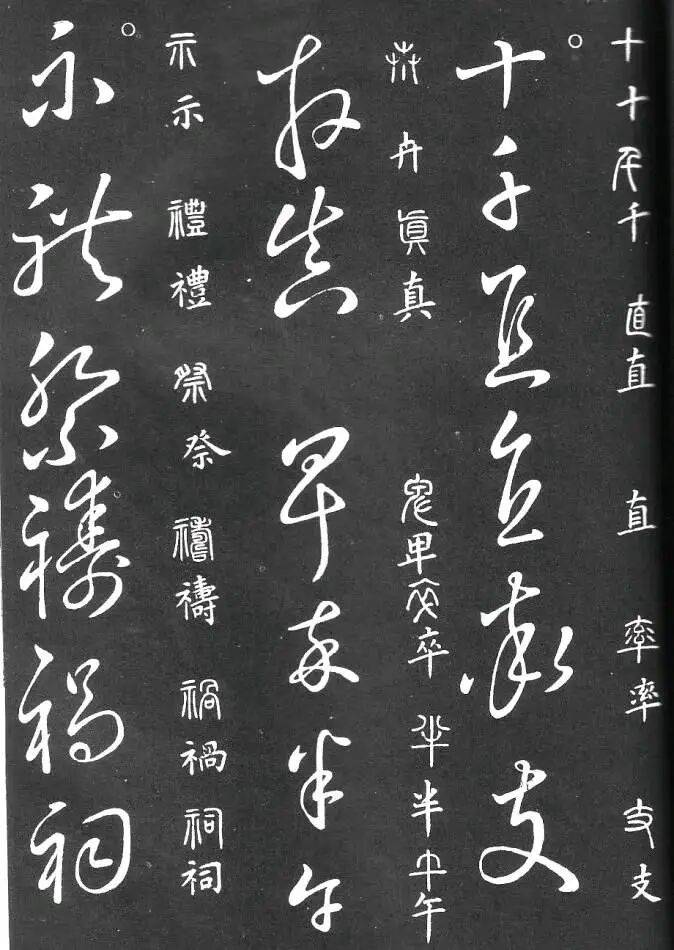 十十千千直直直率率支支
十千直直率支
卉卉眞真卒卒半半午午
卉真卒半午
示示禮禮祭祭禱禱禍禍祠祠
示禮祭禱禍祠